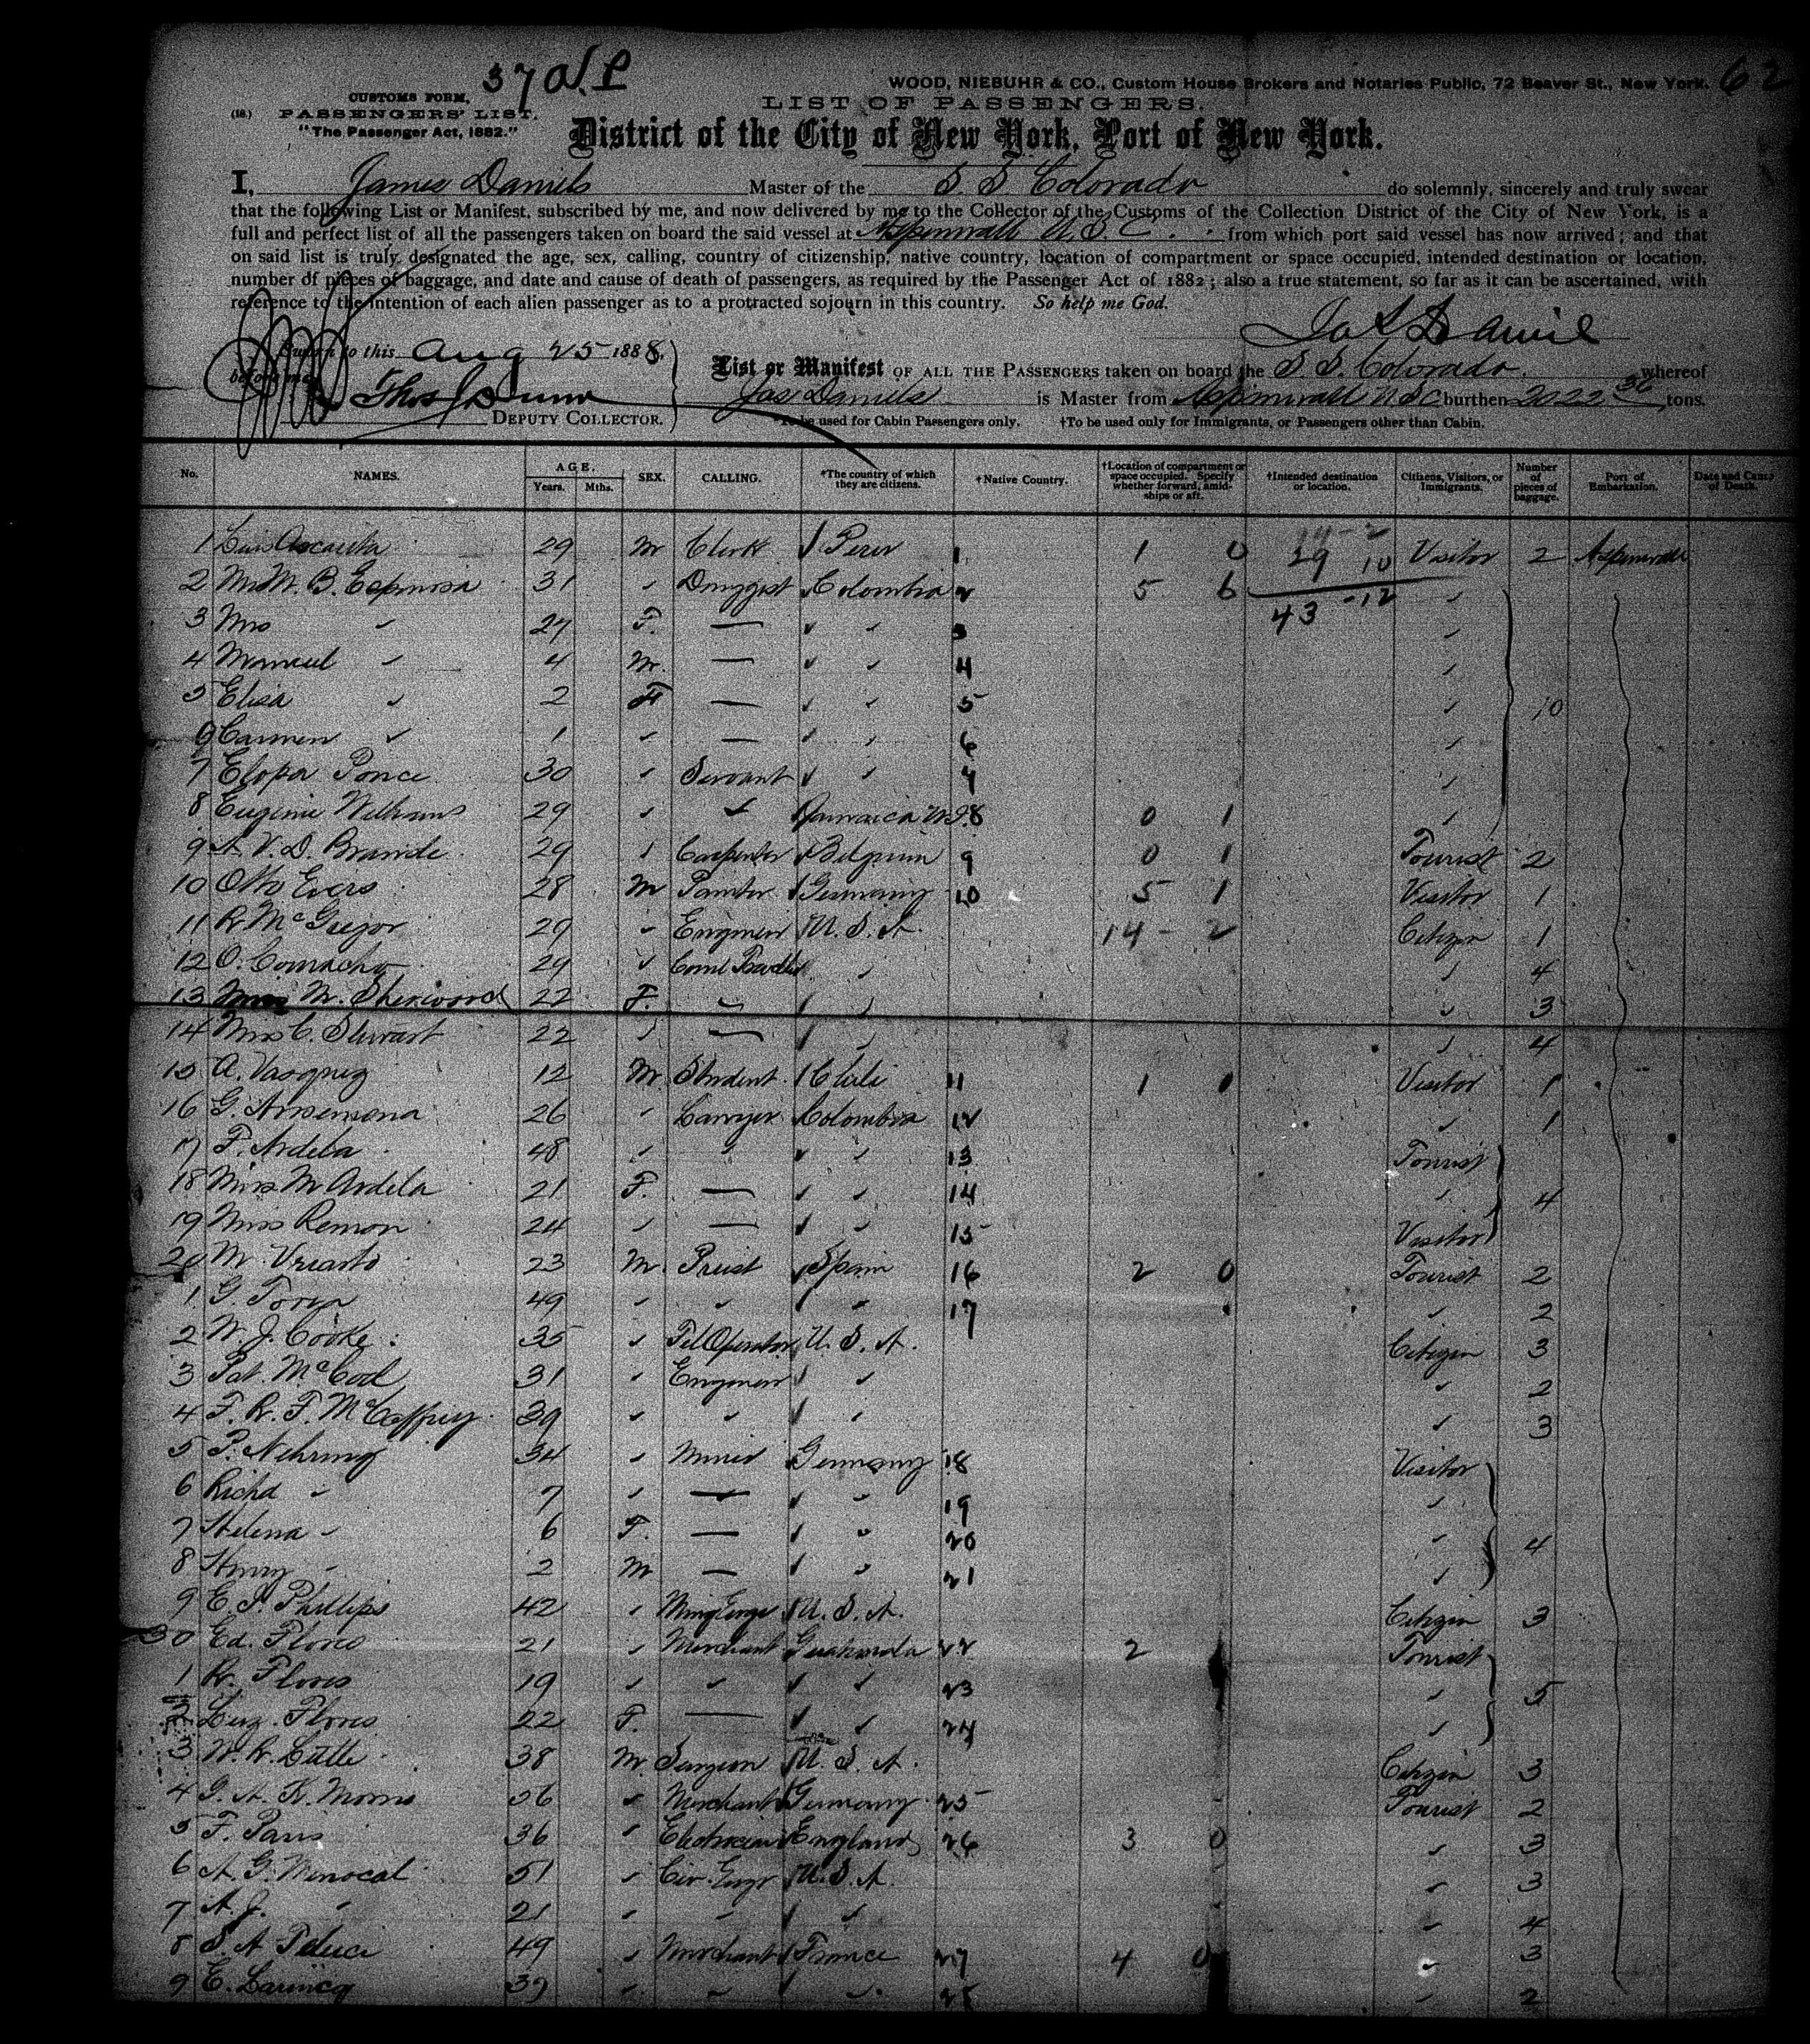 37 N.P
62
WOOD, NIEBUHR & CO., Custom House Brokers and Notaries Public, 72 Beaver St., New York.
CUSTOMS FORM,
(18.) PASSENGERS' LIST.
"The Passenger Act, 1882."
LIST OF PASSENGERS.
District of the City of New York, Port of New York.
I, James Daniels Master of the S. S. Colorado do solemnly, sincerely and truly swear
that the following List or Manifest, subscribed by me, and now delivered by me to the Collector of the Customs of the Collection District of the City of New York, is a
full and perfect list of all the passengers taken on board the said vessel at Aspinwall U.S.C. from which port said vessel has now arrived; and that
on said list is truly designated the age, sex, calling, country of citizenship, native country, location of compartment or space occupied, intended destination or location,
number of pieces of baggage, and date and cause of death of passengers, as required by the Passenger Act of 1882; also a true statement, so far as it can be ascertained, with
reference to the intention of each alien passenger as to a protracted sojourn in this country. So help me God.
Sworn to this Aug 25 1888.
before me
Thos J Dunn
DEPUTY COLLECTOR.
List or Manifest OF ALL THE PASSENGERS taken on board the S. S. Colorado. whereof
Jas Daniels is Master from Aspinwall U S C burthen 2022 36 tons.
*To be used for Cabin Passengers only. †To be used only for Immigrants, or Passengers other than Cabin.
No. NAMES. AGE. Years. Mths. SEX. CALLING. *The country of which they are citizens. †Native Country. †Location of compartment or space occupied. Specify whether forward, amidships or aft. †Intended destination or location. Citizens, Visitors, or Immigrants. Number of pieces of baggage. Port of Embarkation. Date and Cause of Death.
14-2
1 29 M Clerk Peru 1 1 0 29 10 Visitor 2 Aspinwall
2 Mr M. B. Espinosa 31 " Druggist Colombia 2 5 6 43-12 "
3 Mrs " 27 F. — " " 3 "
4 Manuel " 4 M. — " " 4 "
5 Elisa " 2 F — " " 5 " 10
6 Carmen " 1 " — " " 6 "
7 Ponce 30 " Servant " " 7 "
8 Eugenie Williams 29 " " Jamaica W.I. 8 0 1 "
9 A. V. D. Brande 29 " Carpenter Belgium 9 0 1 Tourist 2
10 Otto Evers 28 M Painter Germany 10 5 1 Visitor 1
11 R. McGregor 29 " Engineer U. S. A. 14 - 2 Citizen 1
12 O. Comacho 29 " Coml " " 4
13 M. Sherwood 22 F. " " " 3
14 Mrs C. Stewart 22 " — " " 4
15 A. Vasquez 12 M. Student Chili 11 1 0 Visitor 1
16 G. 26 " Lawyer Colombia 12 " 1
17 F. Ardela 48 " " " " 13 Tourist
18 Miss M Ardela 21 F. — " " 14 " 4
19 Miss Remon 24 " — " " 15 Visitor
20 M. Vriarto 23 M. Priest Spain 16 2 0 Tourist 2
1 G. 49 " " " 17 " 2
2 W. J. Cooke 35 " Tel Operator U. S. A. Citizen 3
3 Pat. McCool 31 " Engineer " " 2
4 F. R. F. McCaffrey 39 " " " " 3
5 P. Nehring 34 " Miner Germany 18 Visitor
6 Richd " 7 " — " " 19 "
7 Helena " 6 F. — " " 20 " 4
8 Henry " 2 M — " " 21 "
9 E. J. Phillips 42 " U. S. A. Citizen 3
30 Ed. Flores 21 " Merchant Guatemala 22 2 Tourist
1 R. Flores 19 " " " " 23 " 5
2 Luz. Flores 22 F. — " " 24 "
3 W. R. Little 38 M. Surgeon U. S. A. Citizen 3
4 G. A. K. Morris 36 " Merchant Germany 25 Tourist 2
5 F. Paris 36 " Electrician England 26 3 0 " 3
6 A. G. Menocal 51 " Civ. Engr U. S. A. " 3
7 A. J. " 21 " " " " " 4
8 S. A 49 " Merchant France 27 4 0 " 3
9 E. 39 " " " 28 " 2